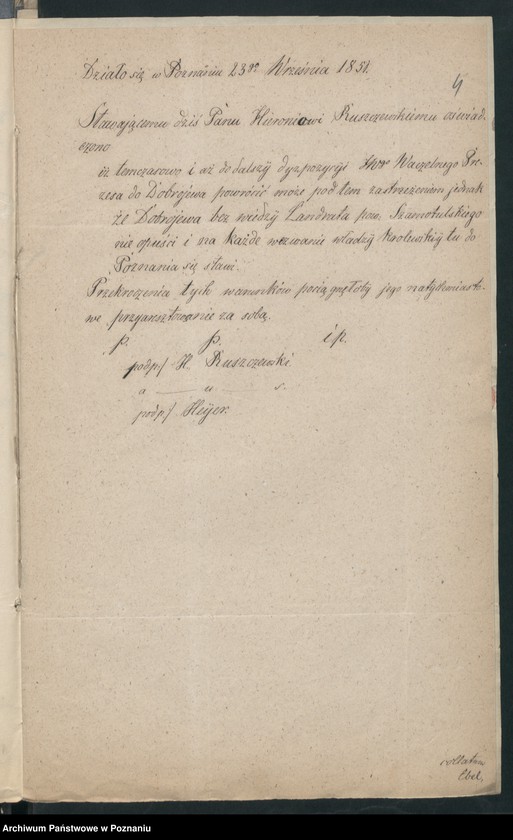 Działo się w Poznaniu 23go Września 1851.
4
Stawającemu dziś Panu Hieroniowi Ruszczewskiemu oświad-
czono
iż tymczasowo i aż do dalszéj dyzpozycyi Naczelnego Pre-
zesa do Dobrojewa powrócić może pod tem zastrzeżeniem jednak
że Dobrojewa bez wiedzy Landrata pow. Szamotulskiego
nie opuści i na każde wezwanie władzy Królewskiéj tu do
Poznania się stawi.
Przekroczenia tych warunków pociągnęłoby jego natychmiasto-
we przyaresztowanie za sobą.
p. p. i p.
podp/ H. Ruszczewski
a u s.
podp/ Heyer.
collatum
Ebel.
Archiwum Państwowe w Poznaniu